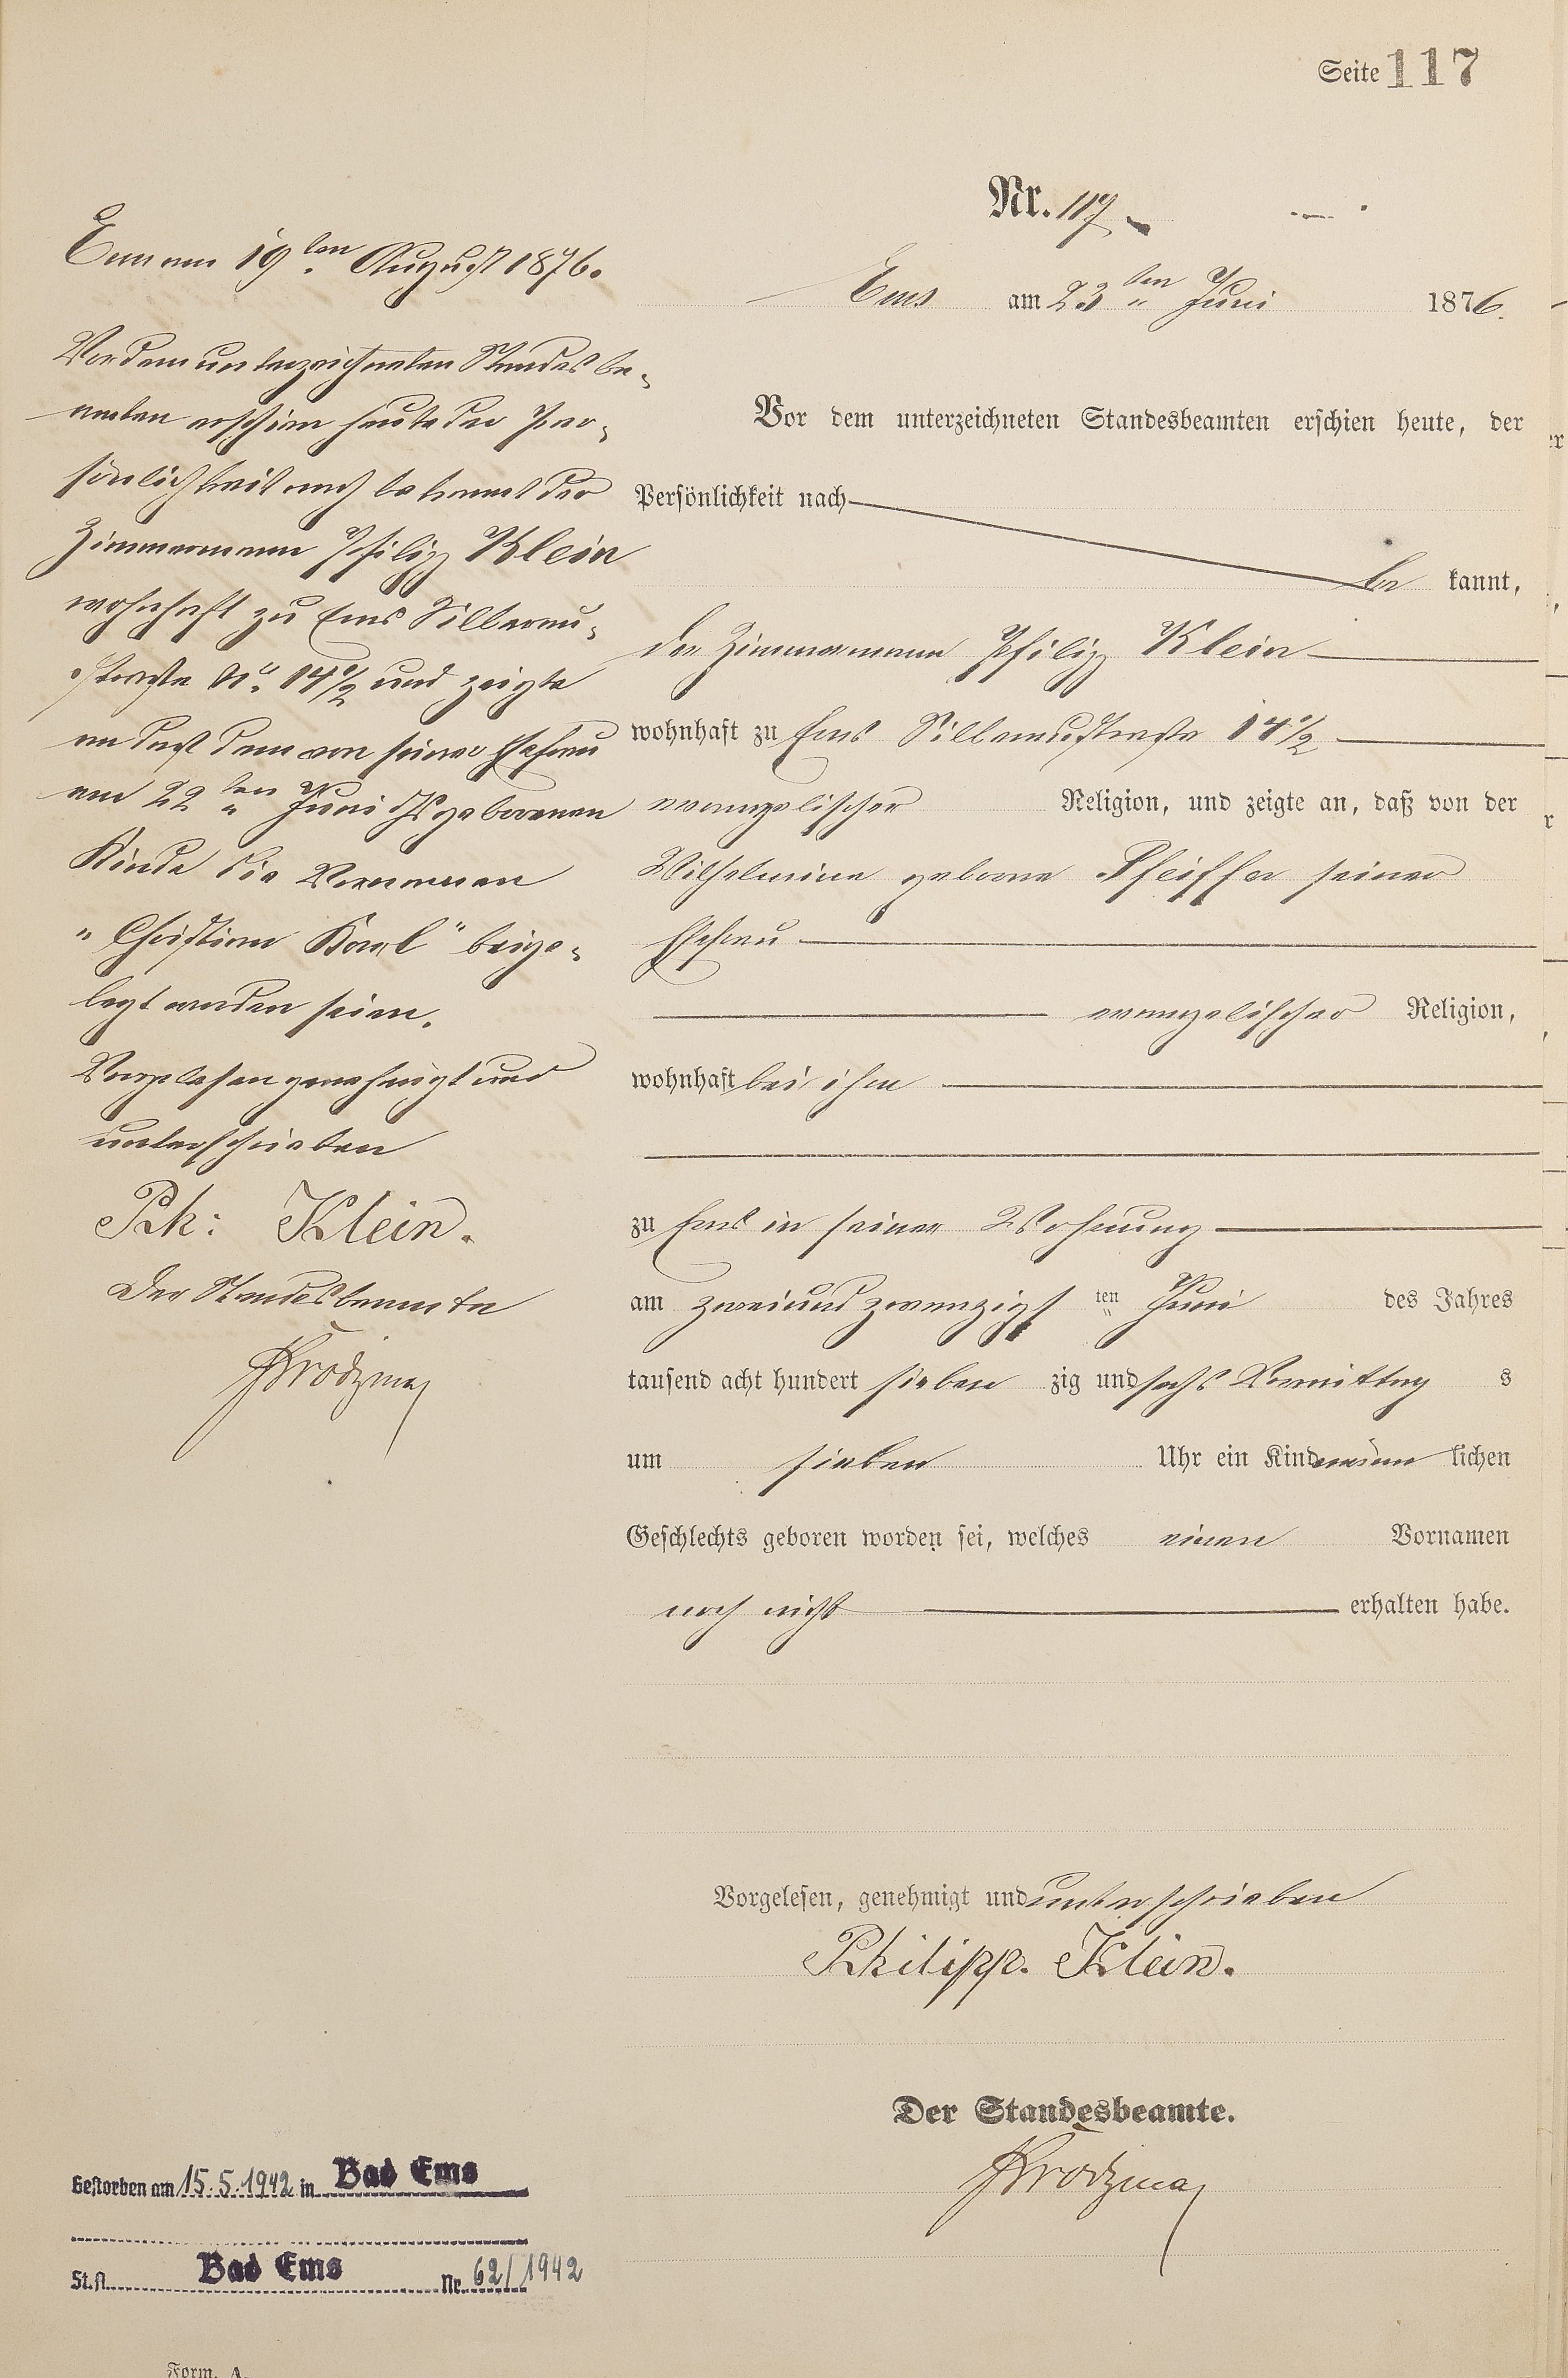 Seite 117
Nr. 117
Ems am 23ten Juni 1876.
Vor dem unterzeichneten Standesbeamten erschien heute, der
Persönlichkeit nach
be kannt,
der Zimmermann Philipp Klein
wohnhaft zu Ems Silberaustraße 14 1/2
evangelischer Religion, und zeigte an, daß von der
Wilhelmine geborne Pfeiffer seiner
Ehefrau
evangelischer Religion,
wohnhaft bei ihm
zu Ems in seiner Wohnung
am zweiundzwanzigsten Juni des Jahres
tausend acht hundert sieben zig und sechs Vormittags
um sieben Uhr ein Kind männlichen
Geschlechts geboren worden sei, welches einen Vornamen
noch nicht erhalten habe.
Vorgelesen, genehmigt und unterschrieben
Philipp. Klein.
Der Standesbeamte.
Ems am 19ten August 1876.
Vor dem unterzeichneten Standesbe-
amten erschien heute der Per-
sönlichkeit nach bekannt der
Zimmermann Philipp Klein
wohnhaft zu Ems Silberau-
straße No. 14 1/2 und zeigte
an daß dem von seiner Ehefrau
am 22ten Juni geborenen
Kinde die Vornamen
"Christian Karl" beige-
legt worden seien.
Vorgelesen genehmigt und
unterschrieben
Ph: Klein.
Der Standesbeamte
Gestorben am 15.5.1942 in Bad Ems
St.A. Bad Ems Nr. 62/1942
Form. A.